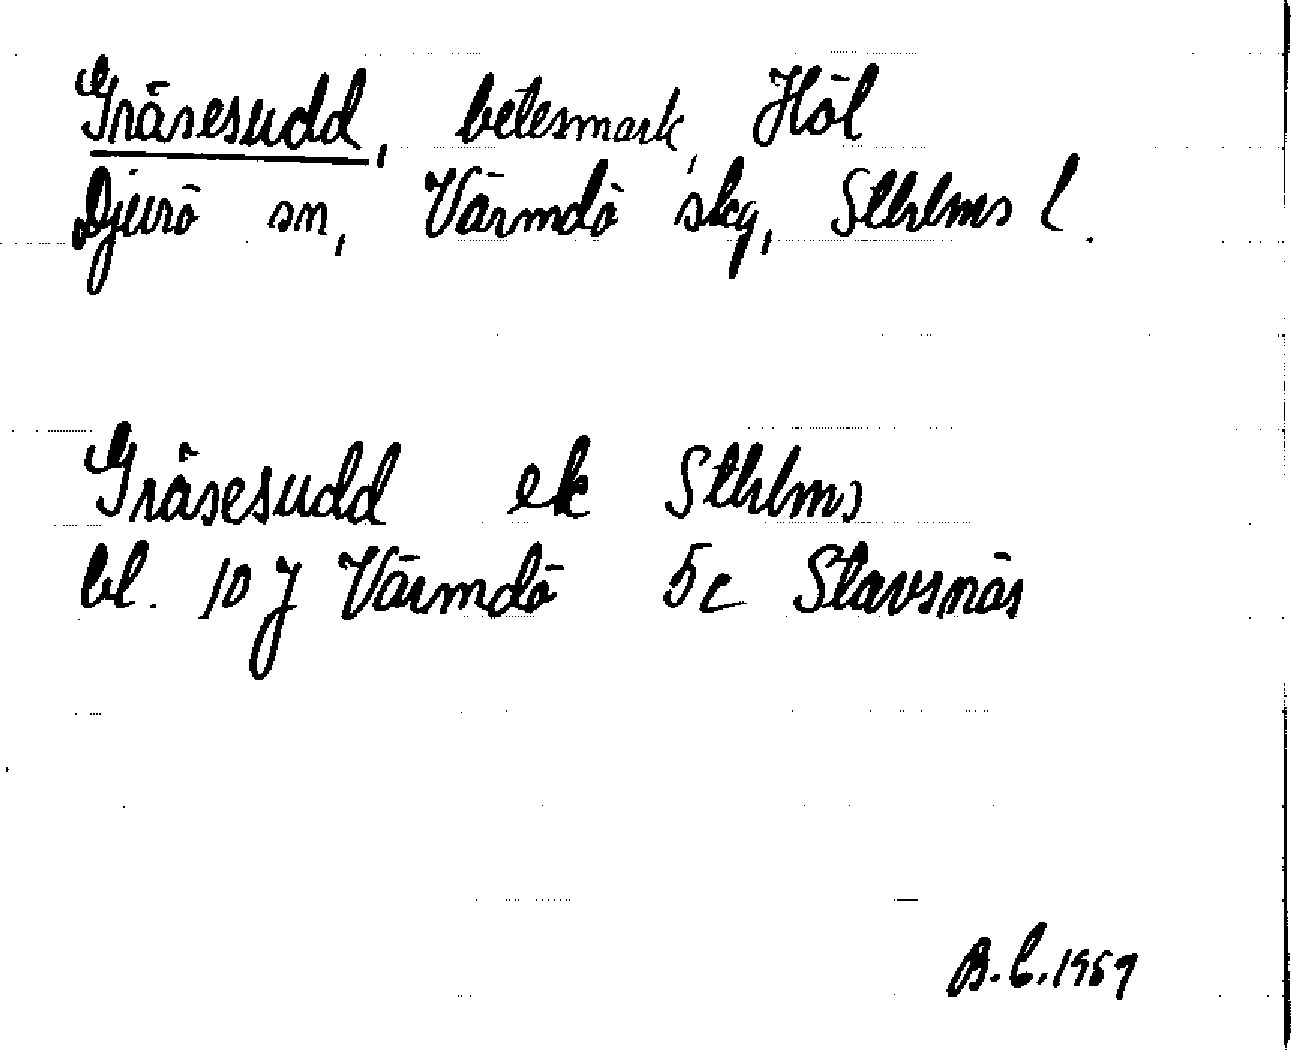 Gräsesudd, betesmark, Höl
Djurö sn, Värmdö skg, Sthlms l.
Gräsesudd ek Sthlms
bl. 10 J Värmdö 5c Stavsnäs